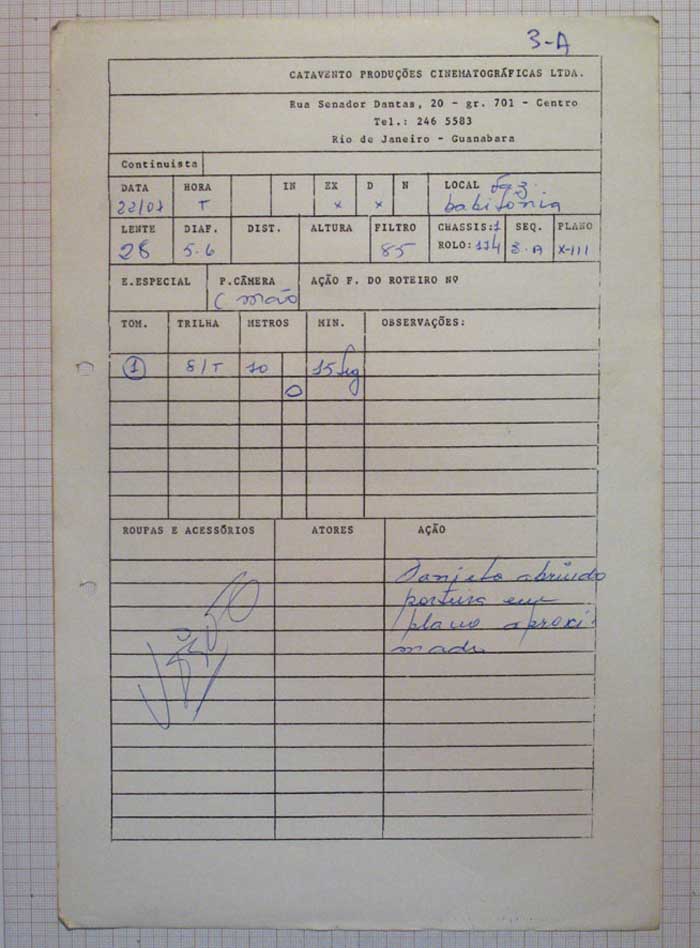 3-A
CATAVENTO PRODUÇÕES CINEMATOGRÁFICAS LTDA.
Rua Senador Dantas, 20 - gr. 701 - Centro
Tel.: 246 5583
Rio de Janeiro - Guanabara
Continuista
DATA HORA IN EX D N LOCAL Faz.
22/07 T x x babilonia
LENTE DIAF. DIST. ALTURA FILTRO CHASSIS:1 SEQ. PLANO
28 5.6 85 ROLO: 114 3.A X-III
E.ESPECIAL P.CÂMERA AÇÃO F. DO ROTEIRO Nº
C mão
TOM. TRILHA METROS MIN. OBSERVAÇÕES:
1 S/T 10 15 seg
O
ROUPAS E ACESSÓRIOS ATORES AÇÃO
abrindo
porteira em
plano aproxi-
mado